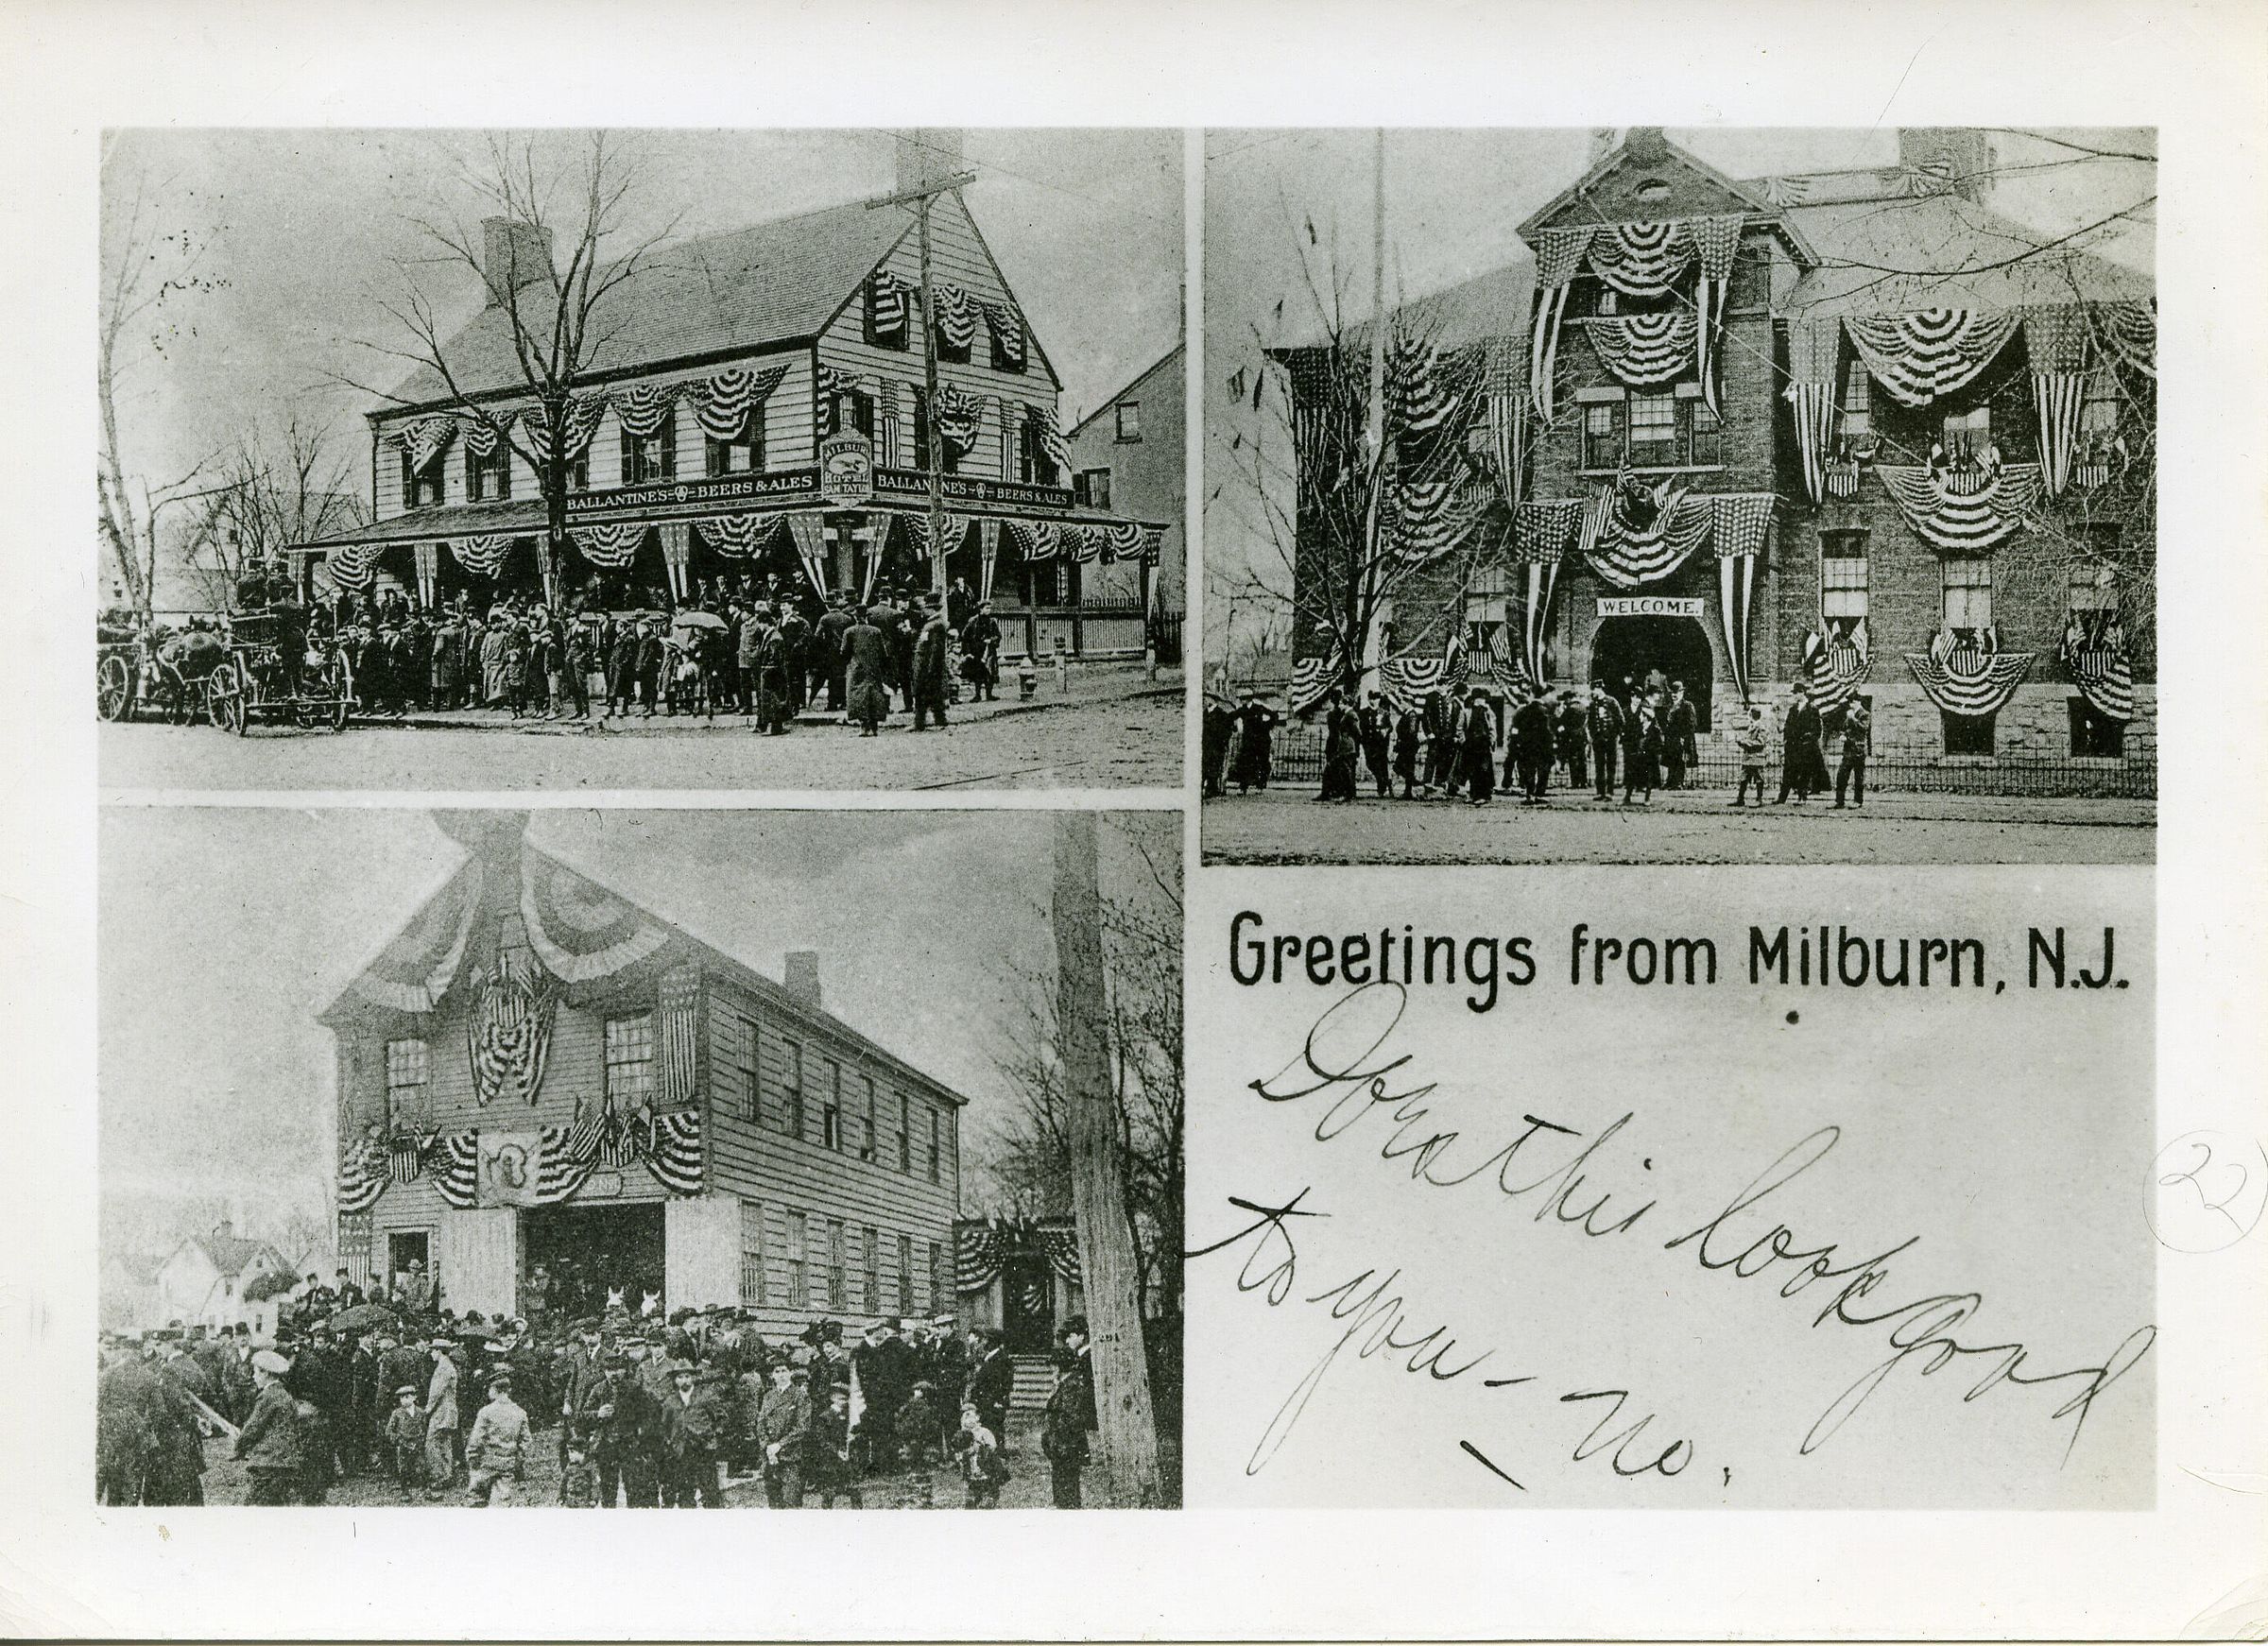 BALLANTINE'S BEERS & ALES
MILBURN
HOTEL
SAM TAYLOR
BALLANTINE'S BEERS & ALES
WELCOME.
Greetings from Milburn, N.J.
Does this look good
to you - no.
22